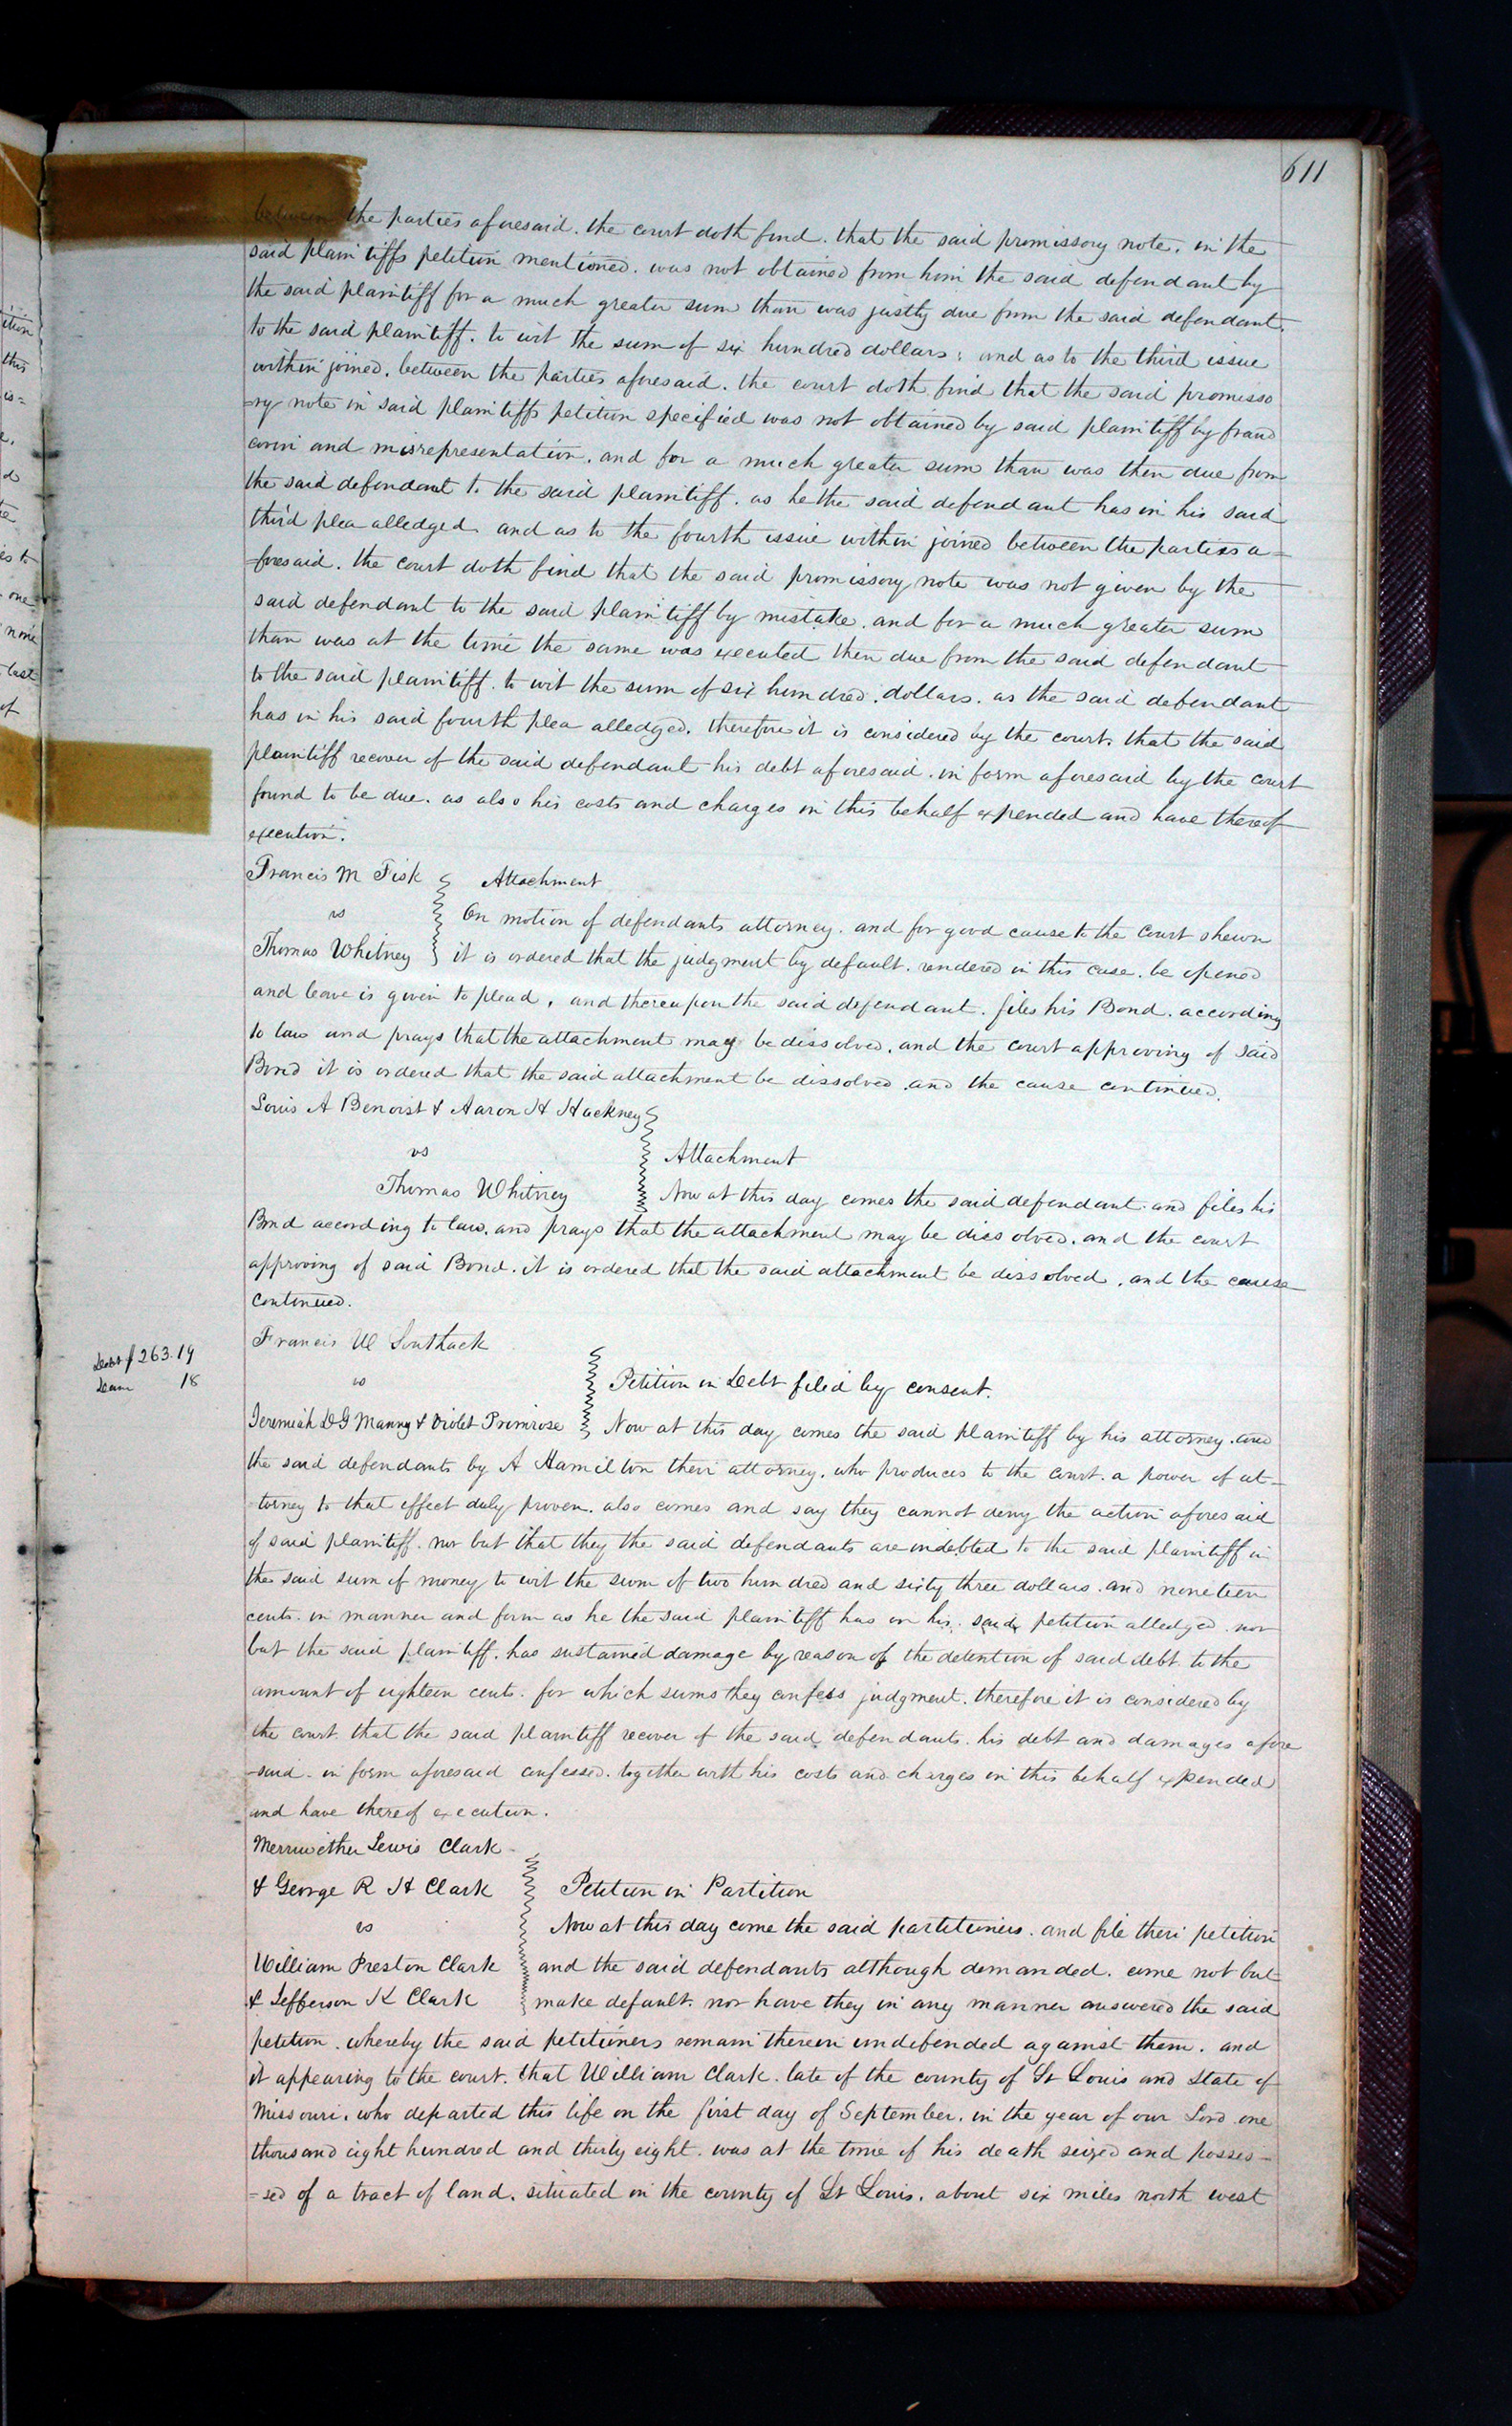 611
between the parties aforesaid. the court doth find. that the said promissory note. in the
said plaintiffs petition mentioned. was not obtained from him the said defendant by
the said plaintiff for a much greater sum than was justly due from the said defendant.
to the said plaintiff. to wit the sum of six hundred dollars; and as to the third issue
within joined. between the parties aforesaid. the court doth find that the said promisso
=ry note in said plaintiffs petition specified was not obtained by said plaintiff by fraud
covin and misrepresentation. and for a much greater sum than was then due from
the said defendant to the said plaintiff. as he the said defendant has in his said
third plea alledged and as to the fourth issue within joined between the parties a=
=foresaid. the court doth find that the said promissory note was not given by the
said defendant to the said plaintiff by mistake. and for a much greater sum
than was at the time the same was executed then due from the said defendant
to the said plaintiff. to wit the sum of six hundred. dollars. as the said defendant
has in his said fourth plea alledged. therefore it is considered by the court. that the said
plaintiff recover of the said defendant his debt aforesaid. in form aforesaid by the court
found to be due. as also his costs and charges in this behalf expended and have thereof
execution.
Francis M Fisk
Attachment
vs
On motion of defendants attorney. and for good cause to the court shewn
Thomas Whitney
it is ordered that the judgment by default. rendered in this case. be opened
and leave is given to plead. and thereupon the said defendant. files his Bond. according
to law and prays that the attachment may be dissolved. and the court approving of said
Bond it is ordered that the said attachment be dissolved. and the cause continued.
Louis A Benoist & Aaron H Hackney
vs
Attachment
Thomas Whitney
Now at this day comes the said defendant. and files his
Bond according to law. and prays that the attachment may be dissolved. and the court
approving of said Bond. it is ordered that the said attachment be dissolved. and the cause
continued.
Francis W Southack
Debt $263.19
Dam 18
vs
Petition in Debt filed by consent.
Jeremiah D G Manny & Violet Primrose
Now at this day comes the said plaintiff by his attorney. and
the said defendants by A Hamilton their attorney. who produces to the court. a power of at=
=torney to that effect duly proven. also comes and say they cannot deny the action aforesaid
of said plaintiff. nor but that they the said defendants are indebted to the said plaintiff in
the said sum of money to wit the sum of two hundred and sixty three dollars. and nineteen
cents. in manner and form as he the said plaintiff has in his said petition alledged. nor
but the said plaintiff. has sustained damage by reason of the detention of said debt. to the
amount of eighteen cents. for which sums they confess judgment. therefore it is considered by
the court. that the said plaintiff recover of the said defendants. his debt and damages afore
=said. in form aforesaid confessed. together with his costs and charges in this behalf expended
and have thereof execution.
Merriwether Lewis Clark
& George R H Clark
Petition in Partition
vs
Now at this day come the said partitioners. and file their petition
William Preston Clark
and the said defendants although demanded. come not but
& Jefferson K Clark
make default. nor have they in any manner answered the said
petition. whereby the said petitioners remain therein undefended against them. and
it appearing to the court. that William Clark. late of the county of St Louis and State of
Missouri. who departed this life on the first day of September. in the year of our Lord one
thousand eight hundred and thirty eight. was at the time of his death seized and posses=
=sed of a tract of land. situated in the county of St Louis. about six miles north west